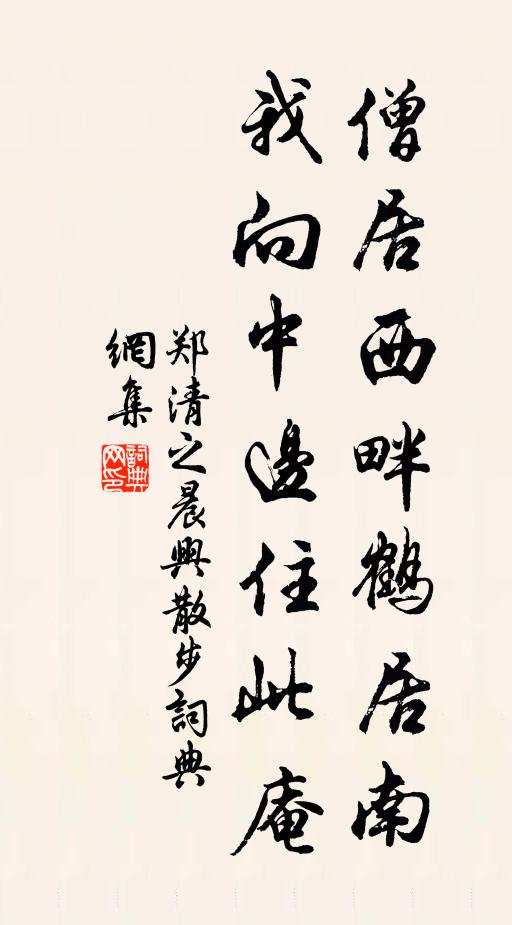 僧居西畔鹤居南
我向中邊住此庵
郑清之晨興散步詞典
網集
詞典
网印